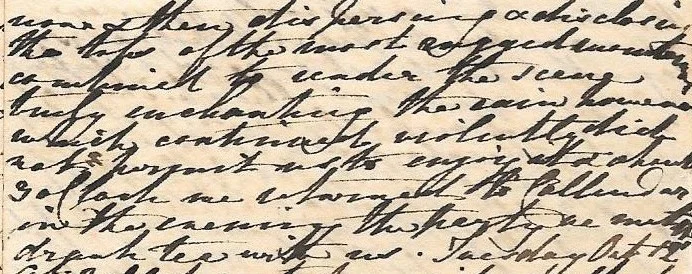 now & then dispersing & disclosing
the tops of the most rugged mountains
combined to render the scene
truly enchanting the rain however
which continued violently did
not permit us to enjoy it & about
3 o Clock we returned to Callendar
in the evening the party we met
drank tea with us. Tuesday Oct 12